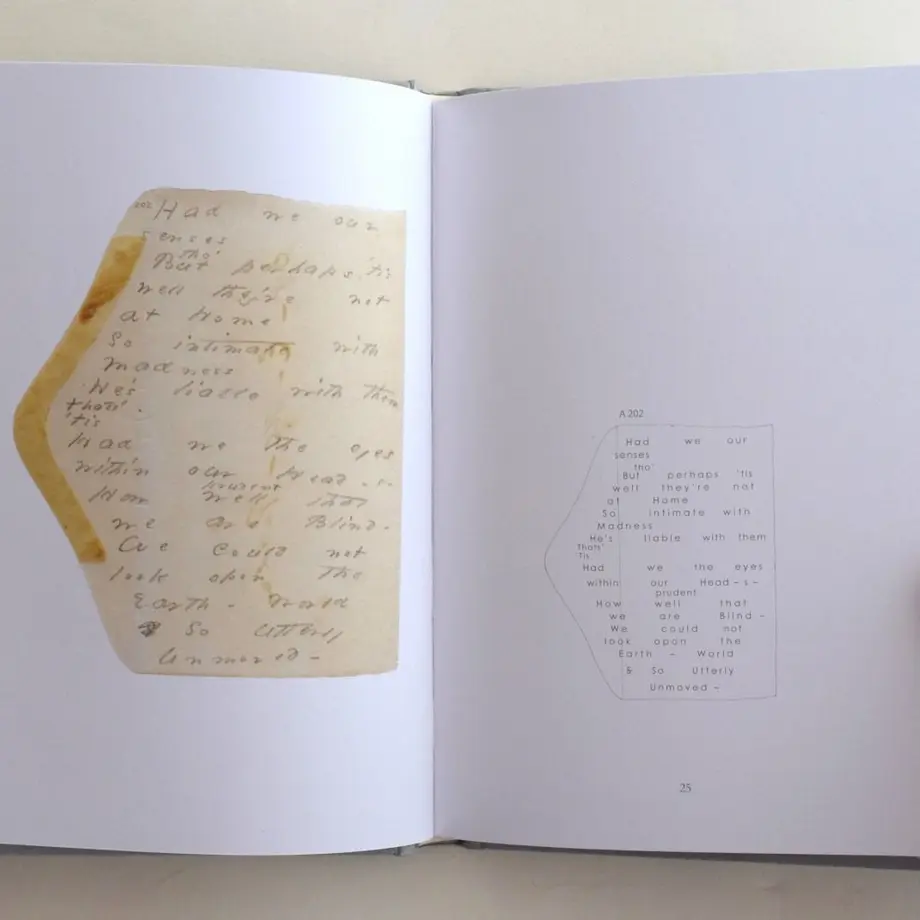 202
Had we our
senses
tho'
But perhaps 'tis
well they're not
at Home
So intimate with
Madness
He's liable with them
thats'
'tis
Had we the eyes
within our Head - s -
prudent
How well that
we are Blind -
We could not
look opon the
Earth - World
& So utterly
Unmoved -
A 202
Had we our
senses
tho'
But perhaps 'tis
well they're not
at Home
So intimate with
Madness
He's liable with them
Thats'
'Tis
Had we the eyes
within our Head - s -
prudent
How well that
we are Blind -
We could not
look opon the
Earth - World
& So Utterly
Unmoved -
25